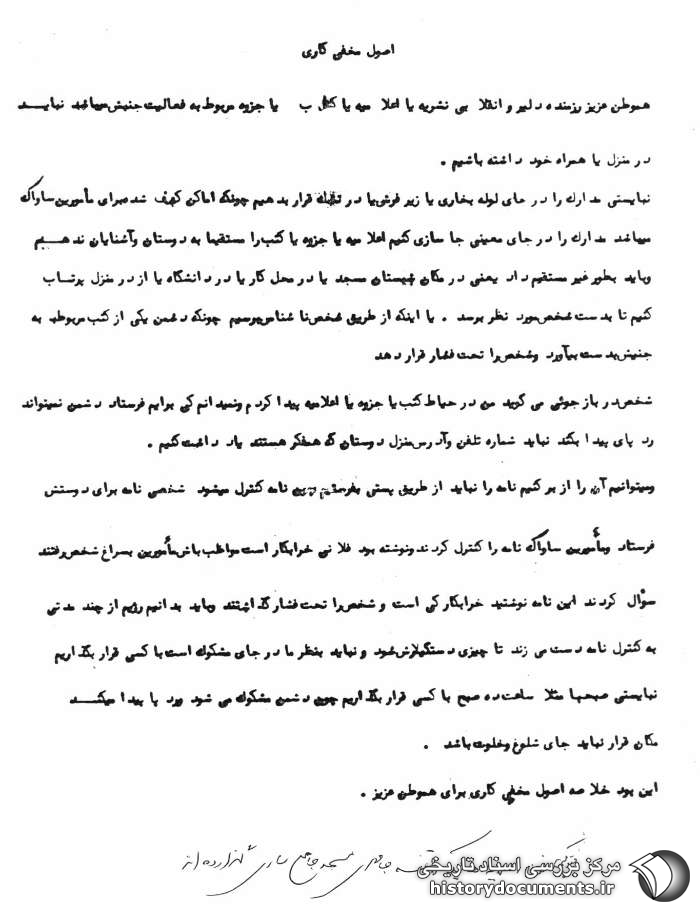 اصول مخفی کاری
هموطن عزیز رزمنده دلیر و انقلا بی نشریه یا اعلا میه یا کتا ب یا جزوه مربوط به فعالیت جنبش میباشد نبایـــد
در منزل یا همراه خود داشته باشیم .
نبایستی مدارک را در جای لوله بخاری یا زیر فرش یا در قرار بدهیم چونکه اماکن کشف شده برای مأمورین ساواک
میباشد مدارک را در جای معینی جا سازی کنیم اعلا میه یا جزوه یا کتب را مستقیما به دوستان وآشنایان ند هـــیم
وباید بطور غیر مستقیم داد یعنی در مکان مسجد یا در محل کار یا در دانشگاه یا از در منزل پرتــاب
کنیم تا بدست شخص مورد نظر برسد . یا اینکه از طریق شخص نا شناس بپرسیم چونکه دشمن یکی از کتب مربوط به
جنبش بدست بیآورد وشخص را تحت فشار قرار دهد
شخص در باز جوئی می گوید من در حیاط کتب یا جزوه یا اعلامیه پیدا کردم ونمیدانم کی برایم فرستاد دشمن نمیتواند
رد پای پیدا بکند نباید شماره تلفن وآدرس منزل دوستان که همفکر هستند یاد داشت کنیم .
ومیتوانیم آن را از بر کنیم نامه را نباید از طریق پستی بفرستیم چون نامه کنترل میشود شخصی نامه برای دوستش
فرستاد ومأمورین ساواک نامه را کنترل کردند ونوشته بود فلا نی خرابکار است مواظب باش مأمورین بسراغ شخص رفتند
سؤال کردند این نامه نوشتید خرابکار کی است و شخص را تحت فشار گذاشتند وباید بدانیم رژیم از چند مدتی
به کنترل نامه دست می زند تا چیزی دستگیرش شود و نباید بنظر ما در جای مشکوک است با کسی قرار بگذاریم
نبایستی صبحها مثلا ساعت ده صبح با کسی قرار بگذاریم چون دشمن مشکوک می شود ورد پا پیدا میکنـــد
مکان قرار نباید جای شلوغ وخلوت باشد .
این بود خلا صه اصول مخفی کاری برای هموطن عزیز .
مسجد جامع ساری
مرکز بررسی اسناد تاریخی
historydocuments.ir